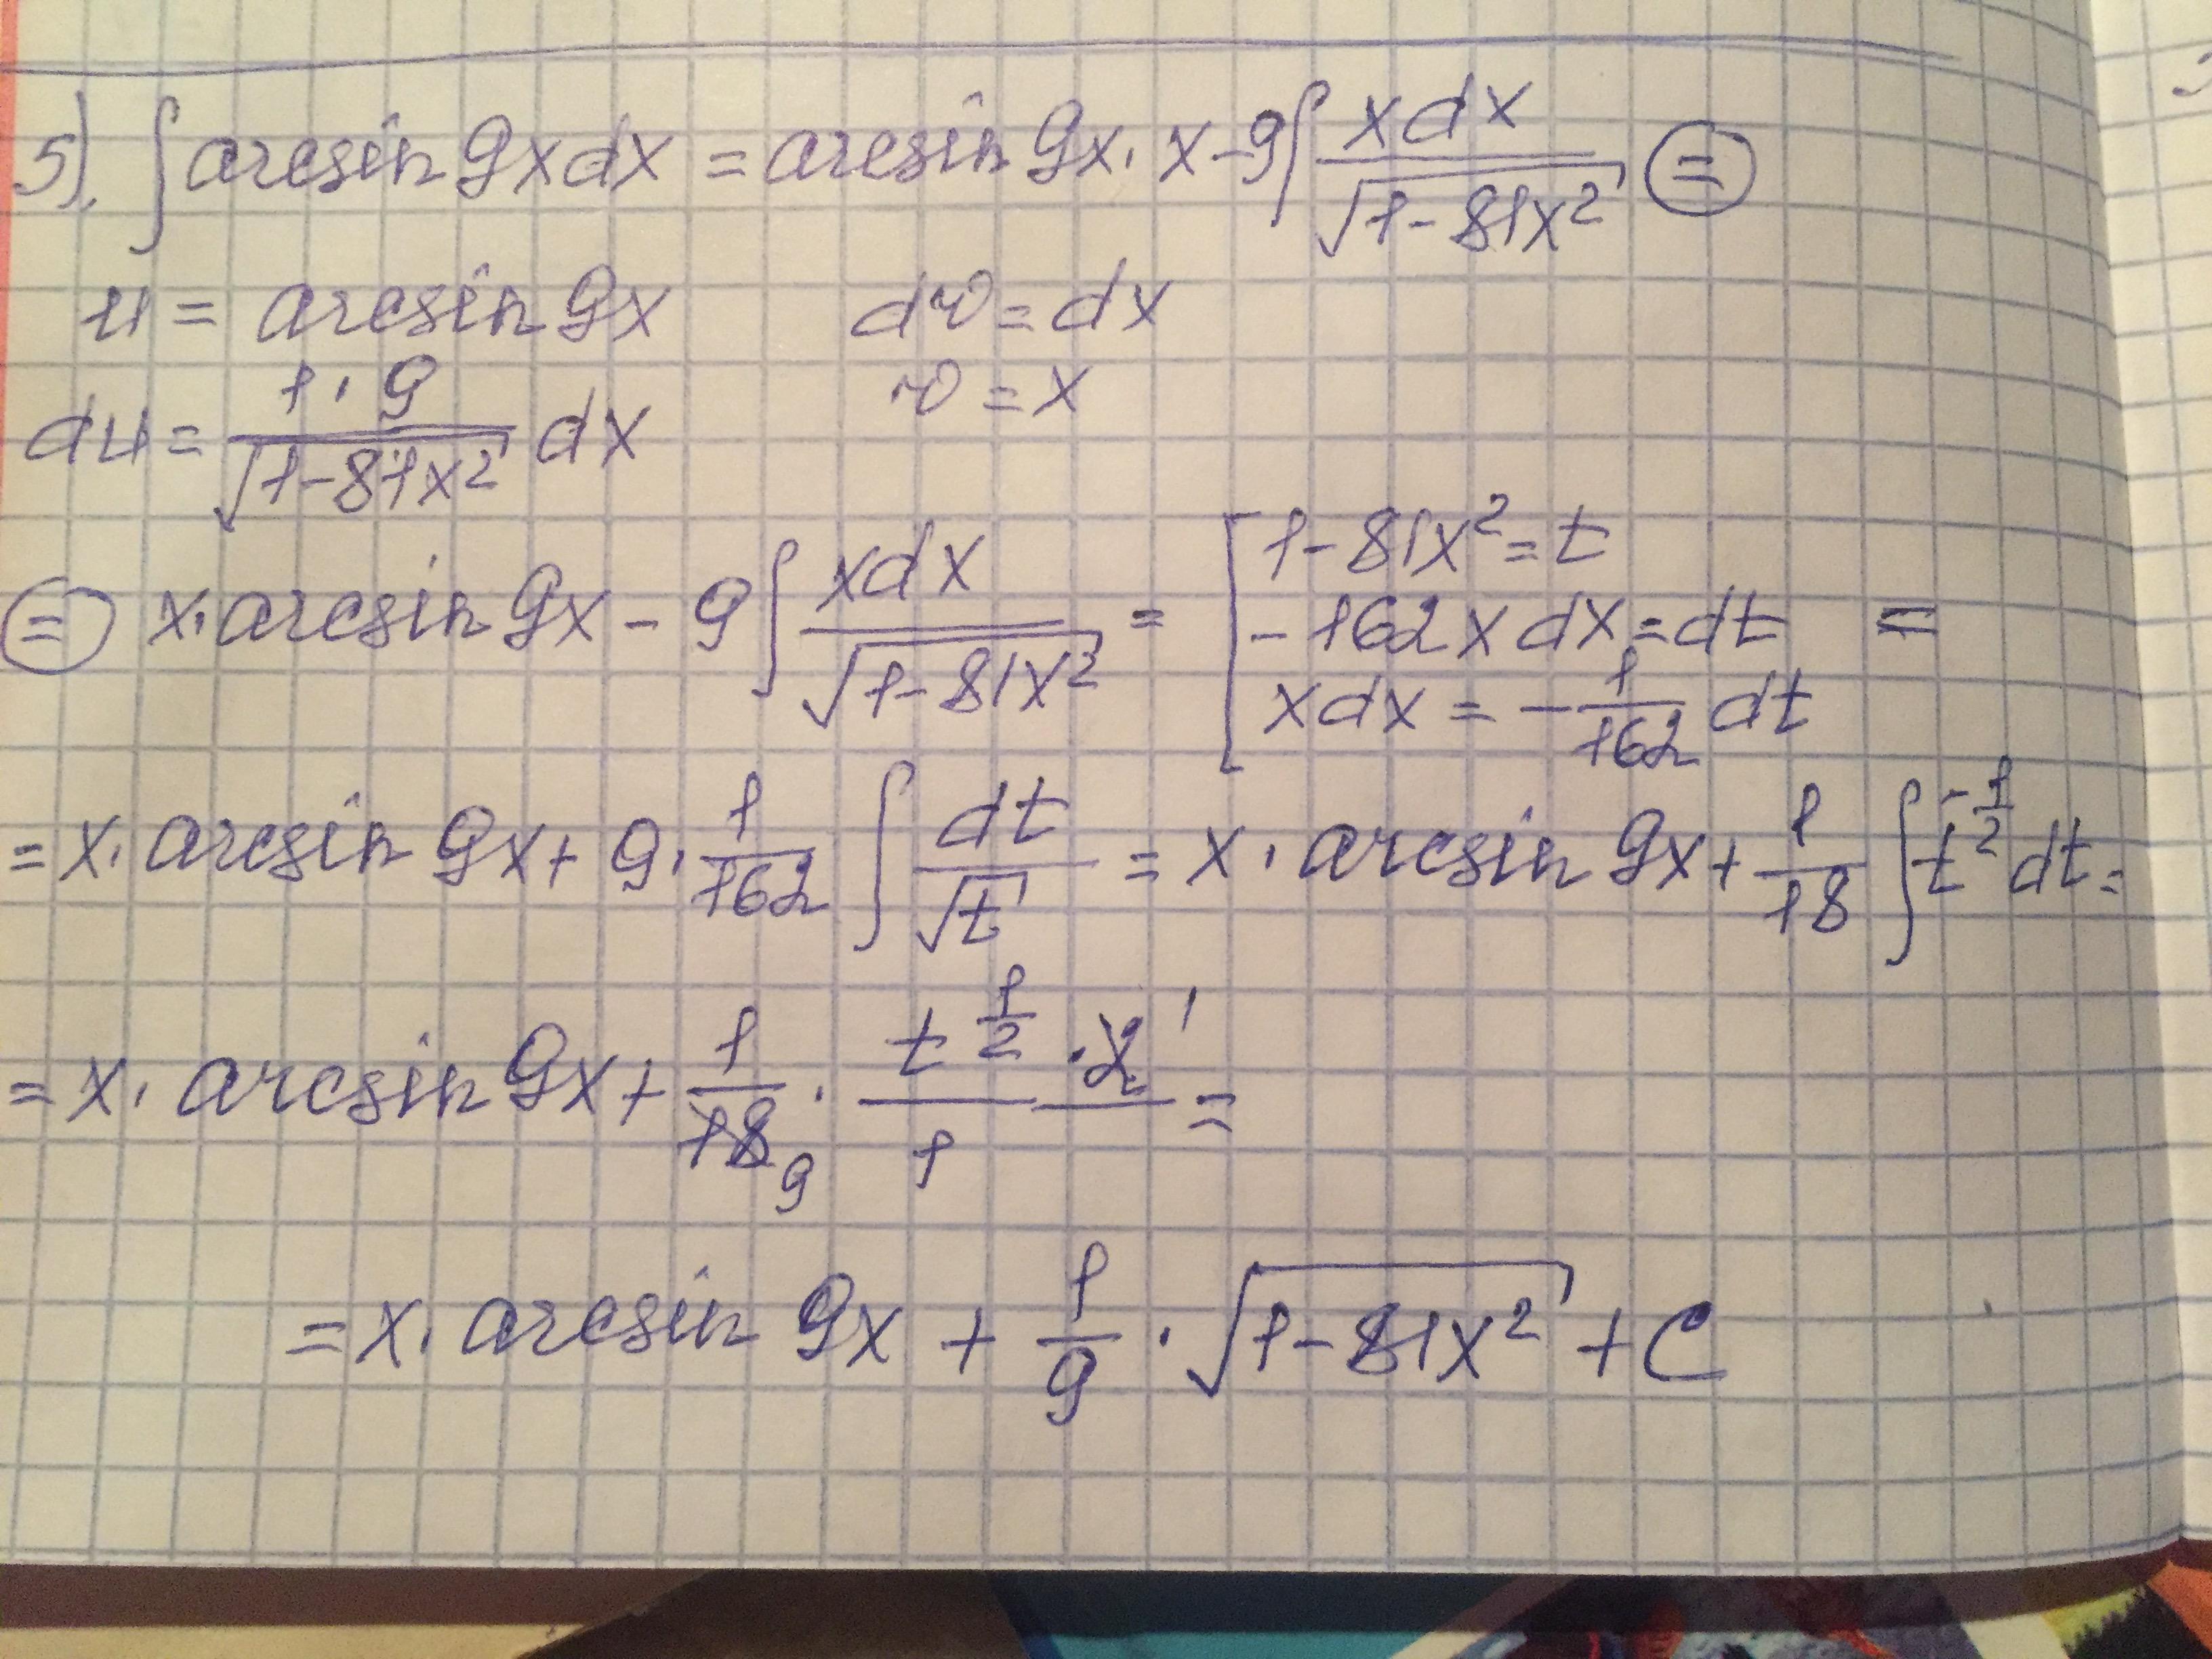 5). ∫ arcsin 9x dx = arcsin 9x · x - 9 ∫ xdx / √(1-81x²) ⊜
u = arcsin 9x dv = dx
du = 1·9 / √(1-81x²) dx v = x
⊜ x · arcsin 9x - 9 ∫ xdx / √(1-81x²) = [ 1-81x² = t
-162x dx = dt =
xdx = -1/162 dt
= x · arcsin 9x + 9 · 1/162 ∫ dt/√t = x · arcsin 9x + 1/18 ∫ t^(-1/2) dt =
= x · arcsin 9x + 1/18 9 · t^(1/2) · 2 1 / 1 =
= x · arcsin 9x + 1/9 · √(1-81x²) + C